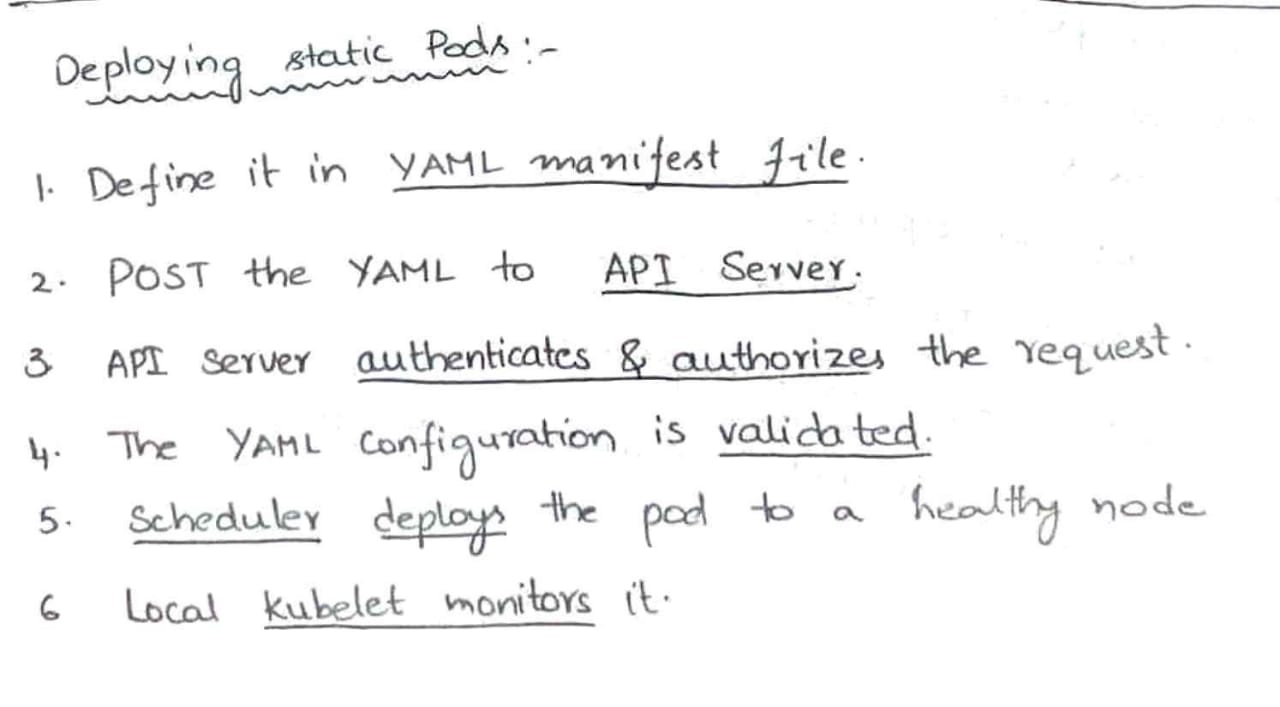 Deploying static Pods:-
1. Define it in YAML manifest file.
2. POST the YAML to API Server.
3 API Server authenticates & authorizes the request.
4. The YAML Configuration is validated.
5. Scheduler deploys the pod to a healthy node
6 Local kubelet monitors it.